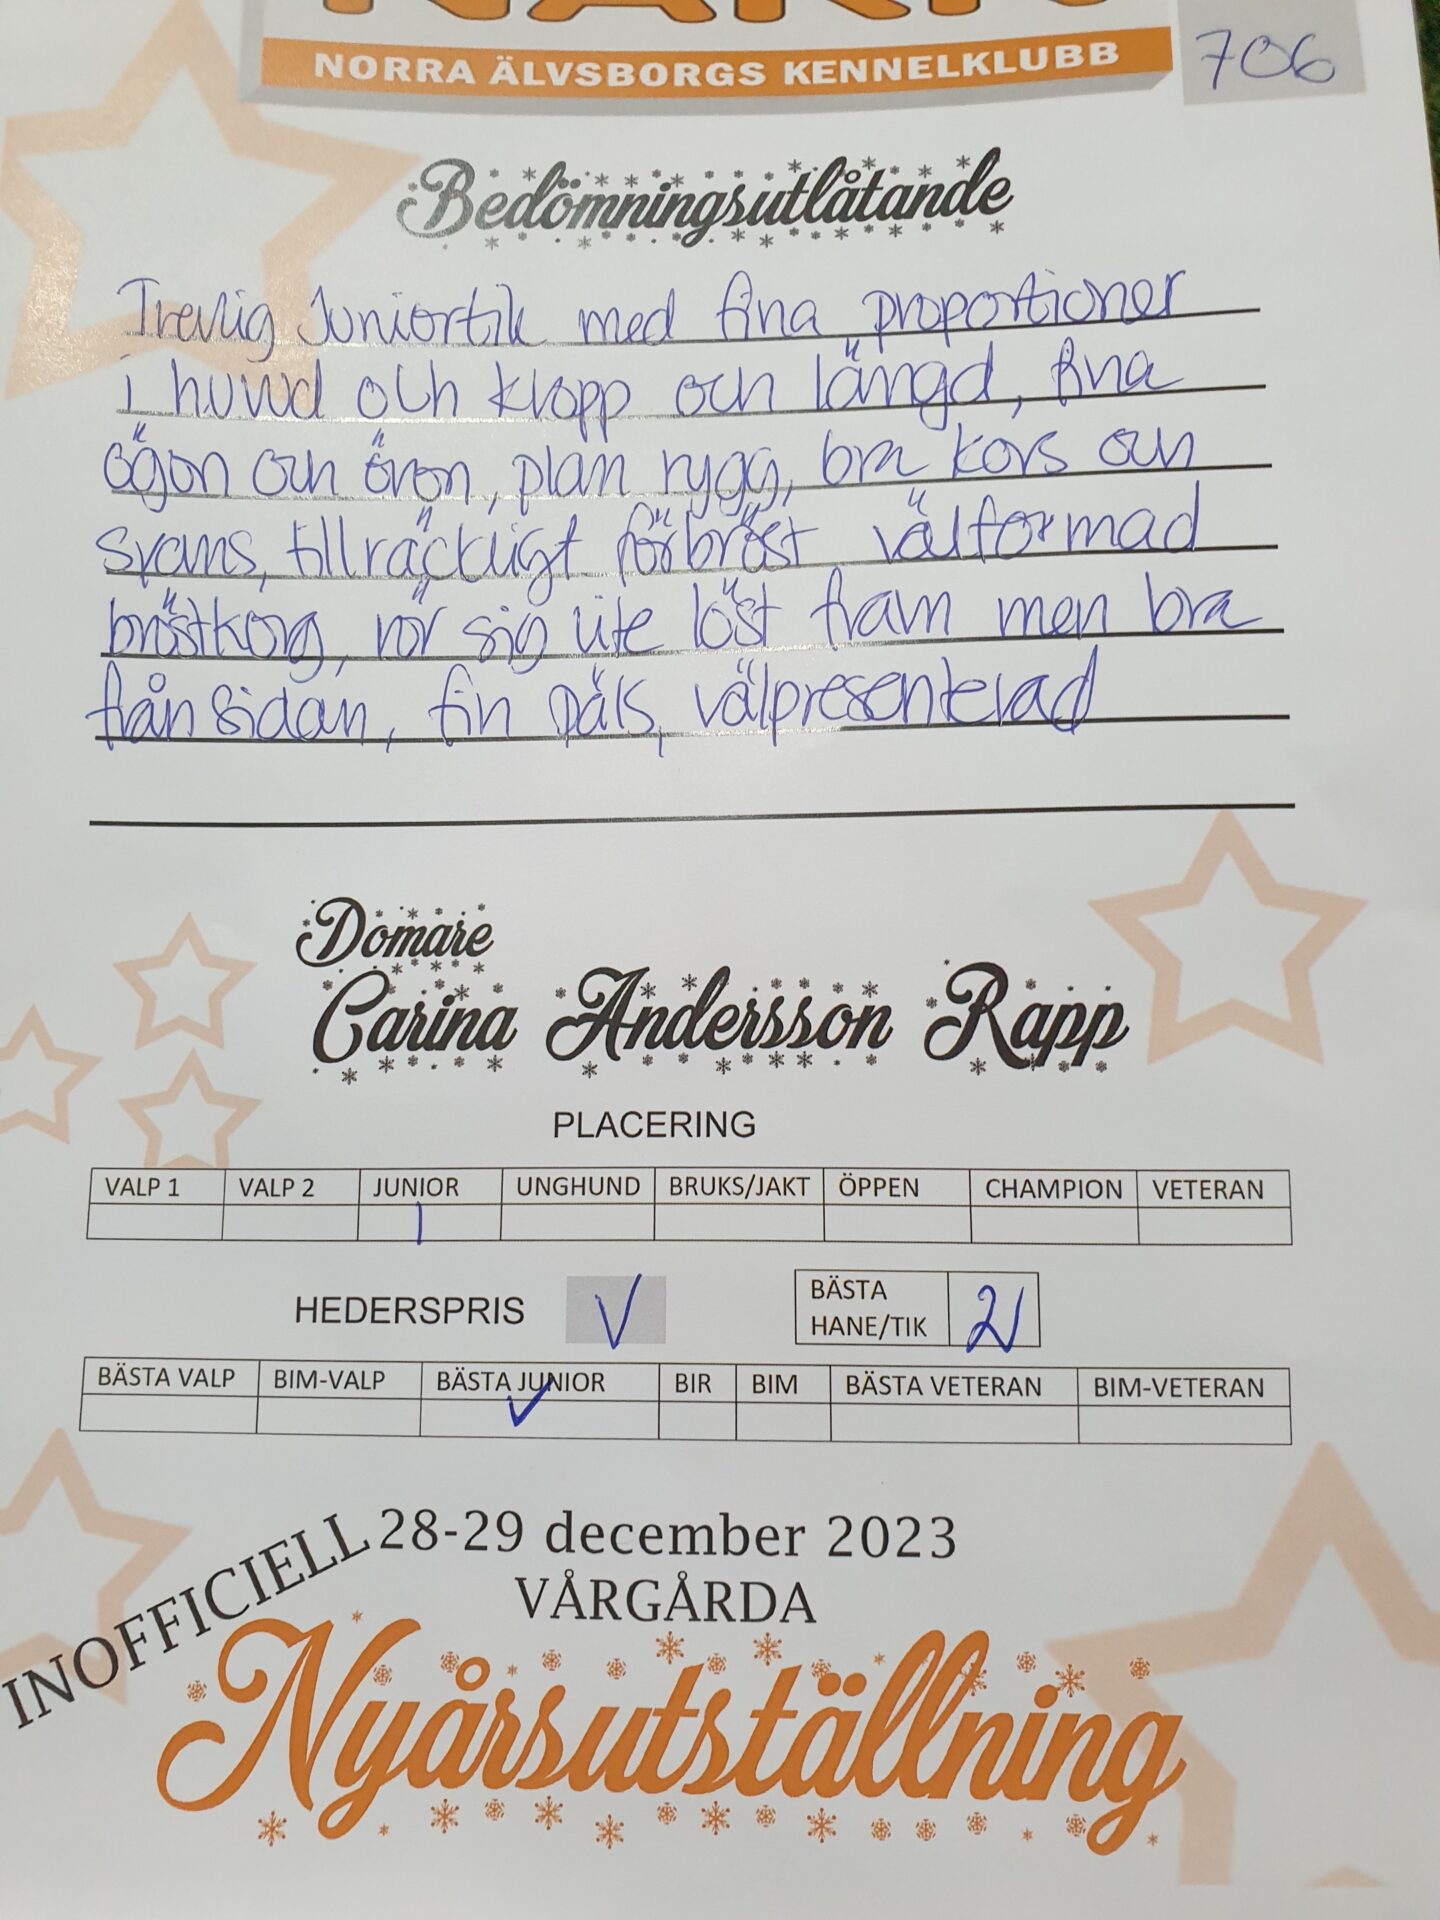 NORRA ÄLVSBORGS KENNELKLUBB
706
Bedömningsutlåtande
Trevlig Juniortik med fina proportioner
i huvud och kropp och längd, fina
ögon och öron, plan rygg, bra kors och
svans, tillräckligt förbröst, välformad
bröstkorg, rör sig lite löst fram men bra
från sidan, fin päls, välpresenterad
Domare
Carina Andersson Rapp
PLACERING
VALP 1 VALP 2 JUNIOR UNGHUND BRUKS/JAKT ÖPPEN CHAMPION VETERAN
1
HEDERSPRIS V BÄSTA HANE/TIK 2
BÄSTA VALP BIM-VALP BÄSTA JUNIOR BIR BIM BÄSTA VETERAN BIM-VETERAN
INOFFICIELL
28-29 december 2023
VÅRGÅRDA
Nyårsutställning